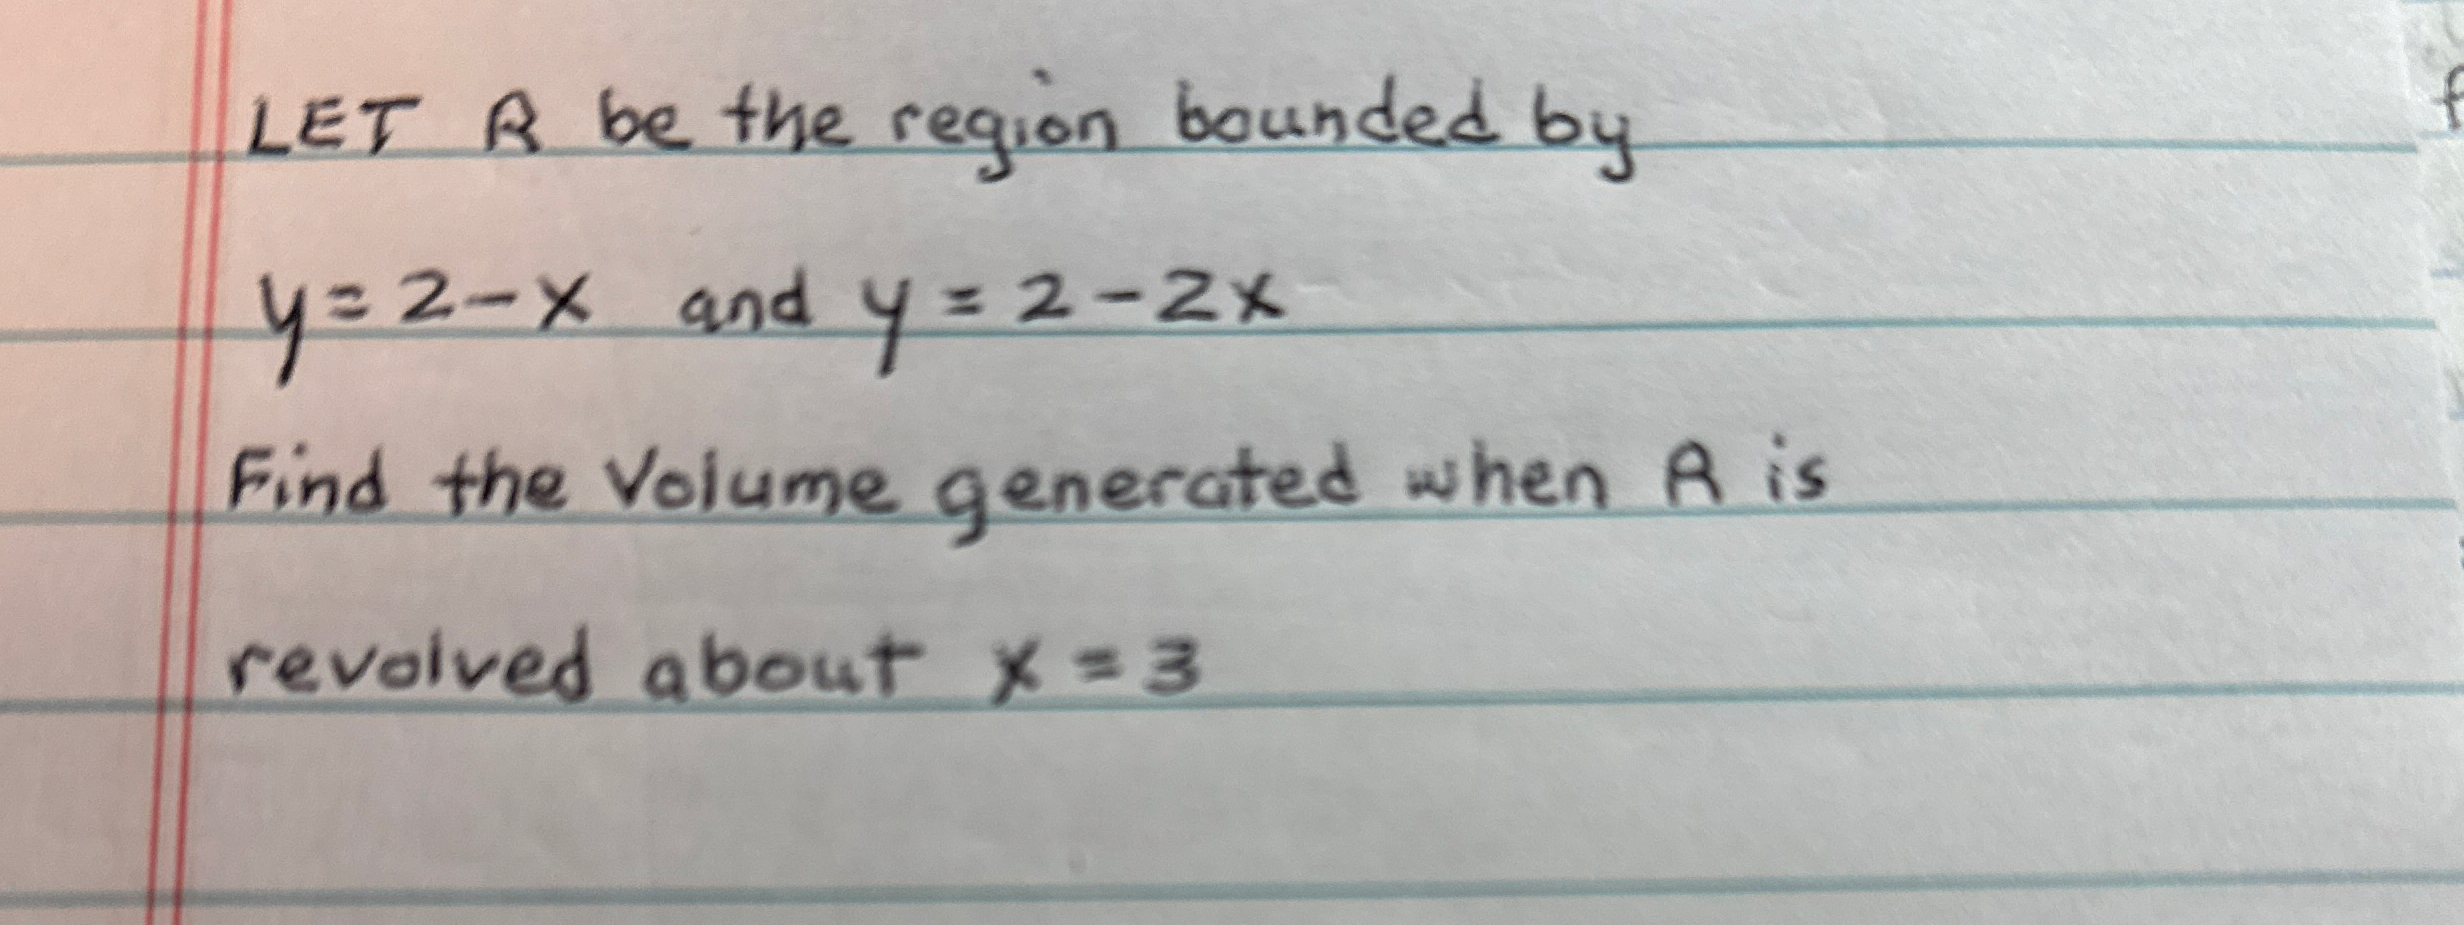 LET R be the region bounded by
y = 2 - x and y = 2 - 2x
Find the Volume generated when R is
revolved about x = 3